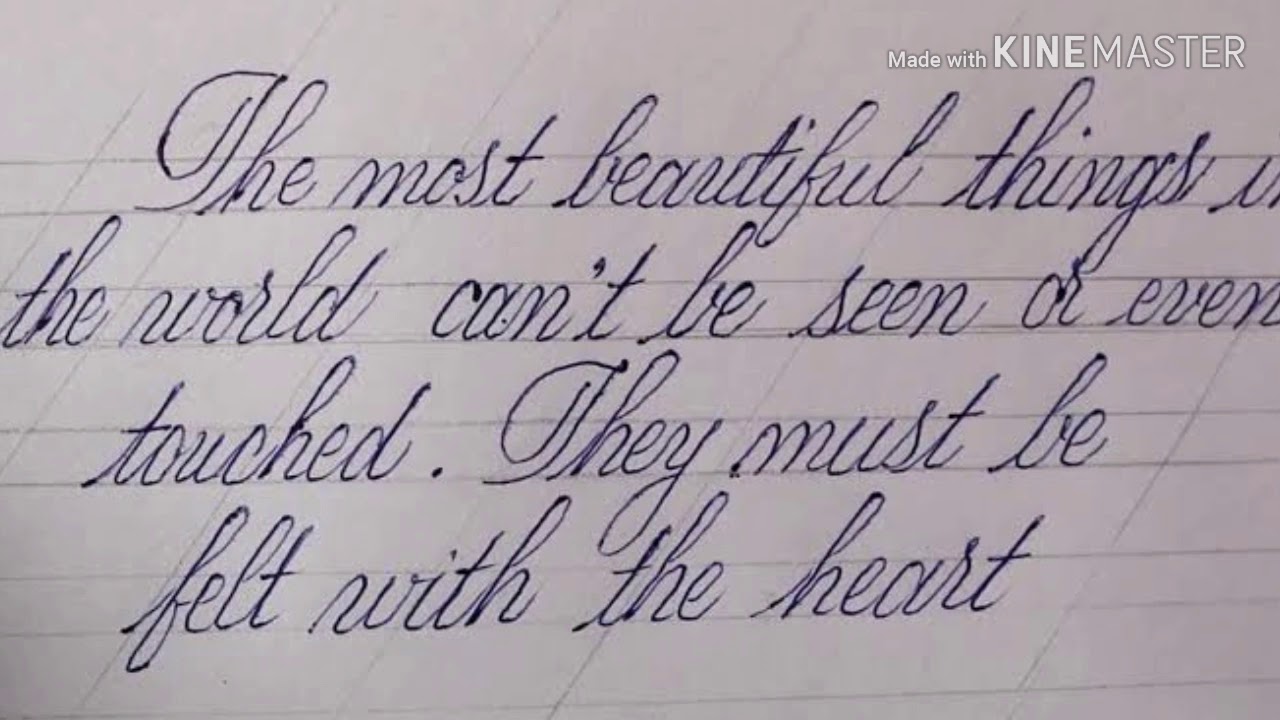 Made with KINEMASTER
The most beautiful things in
the world can't be seen or even
touched. They must be
felt with the heart